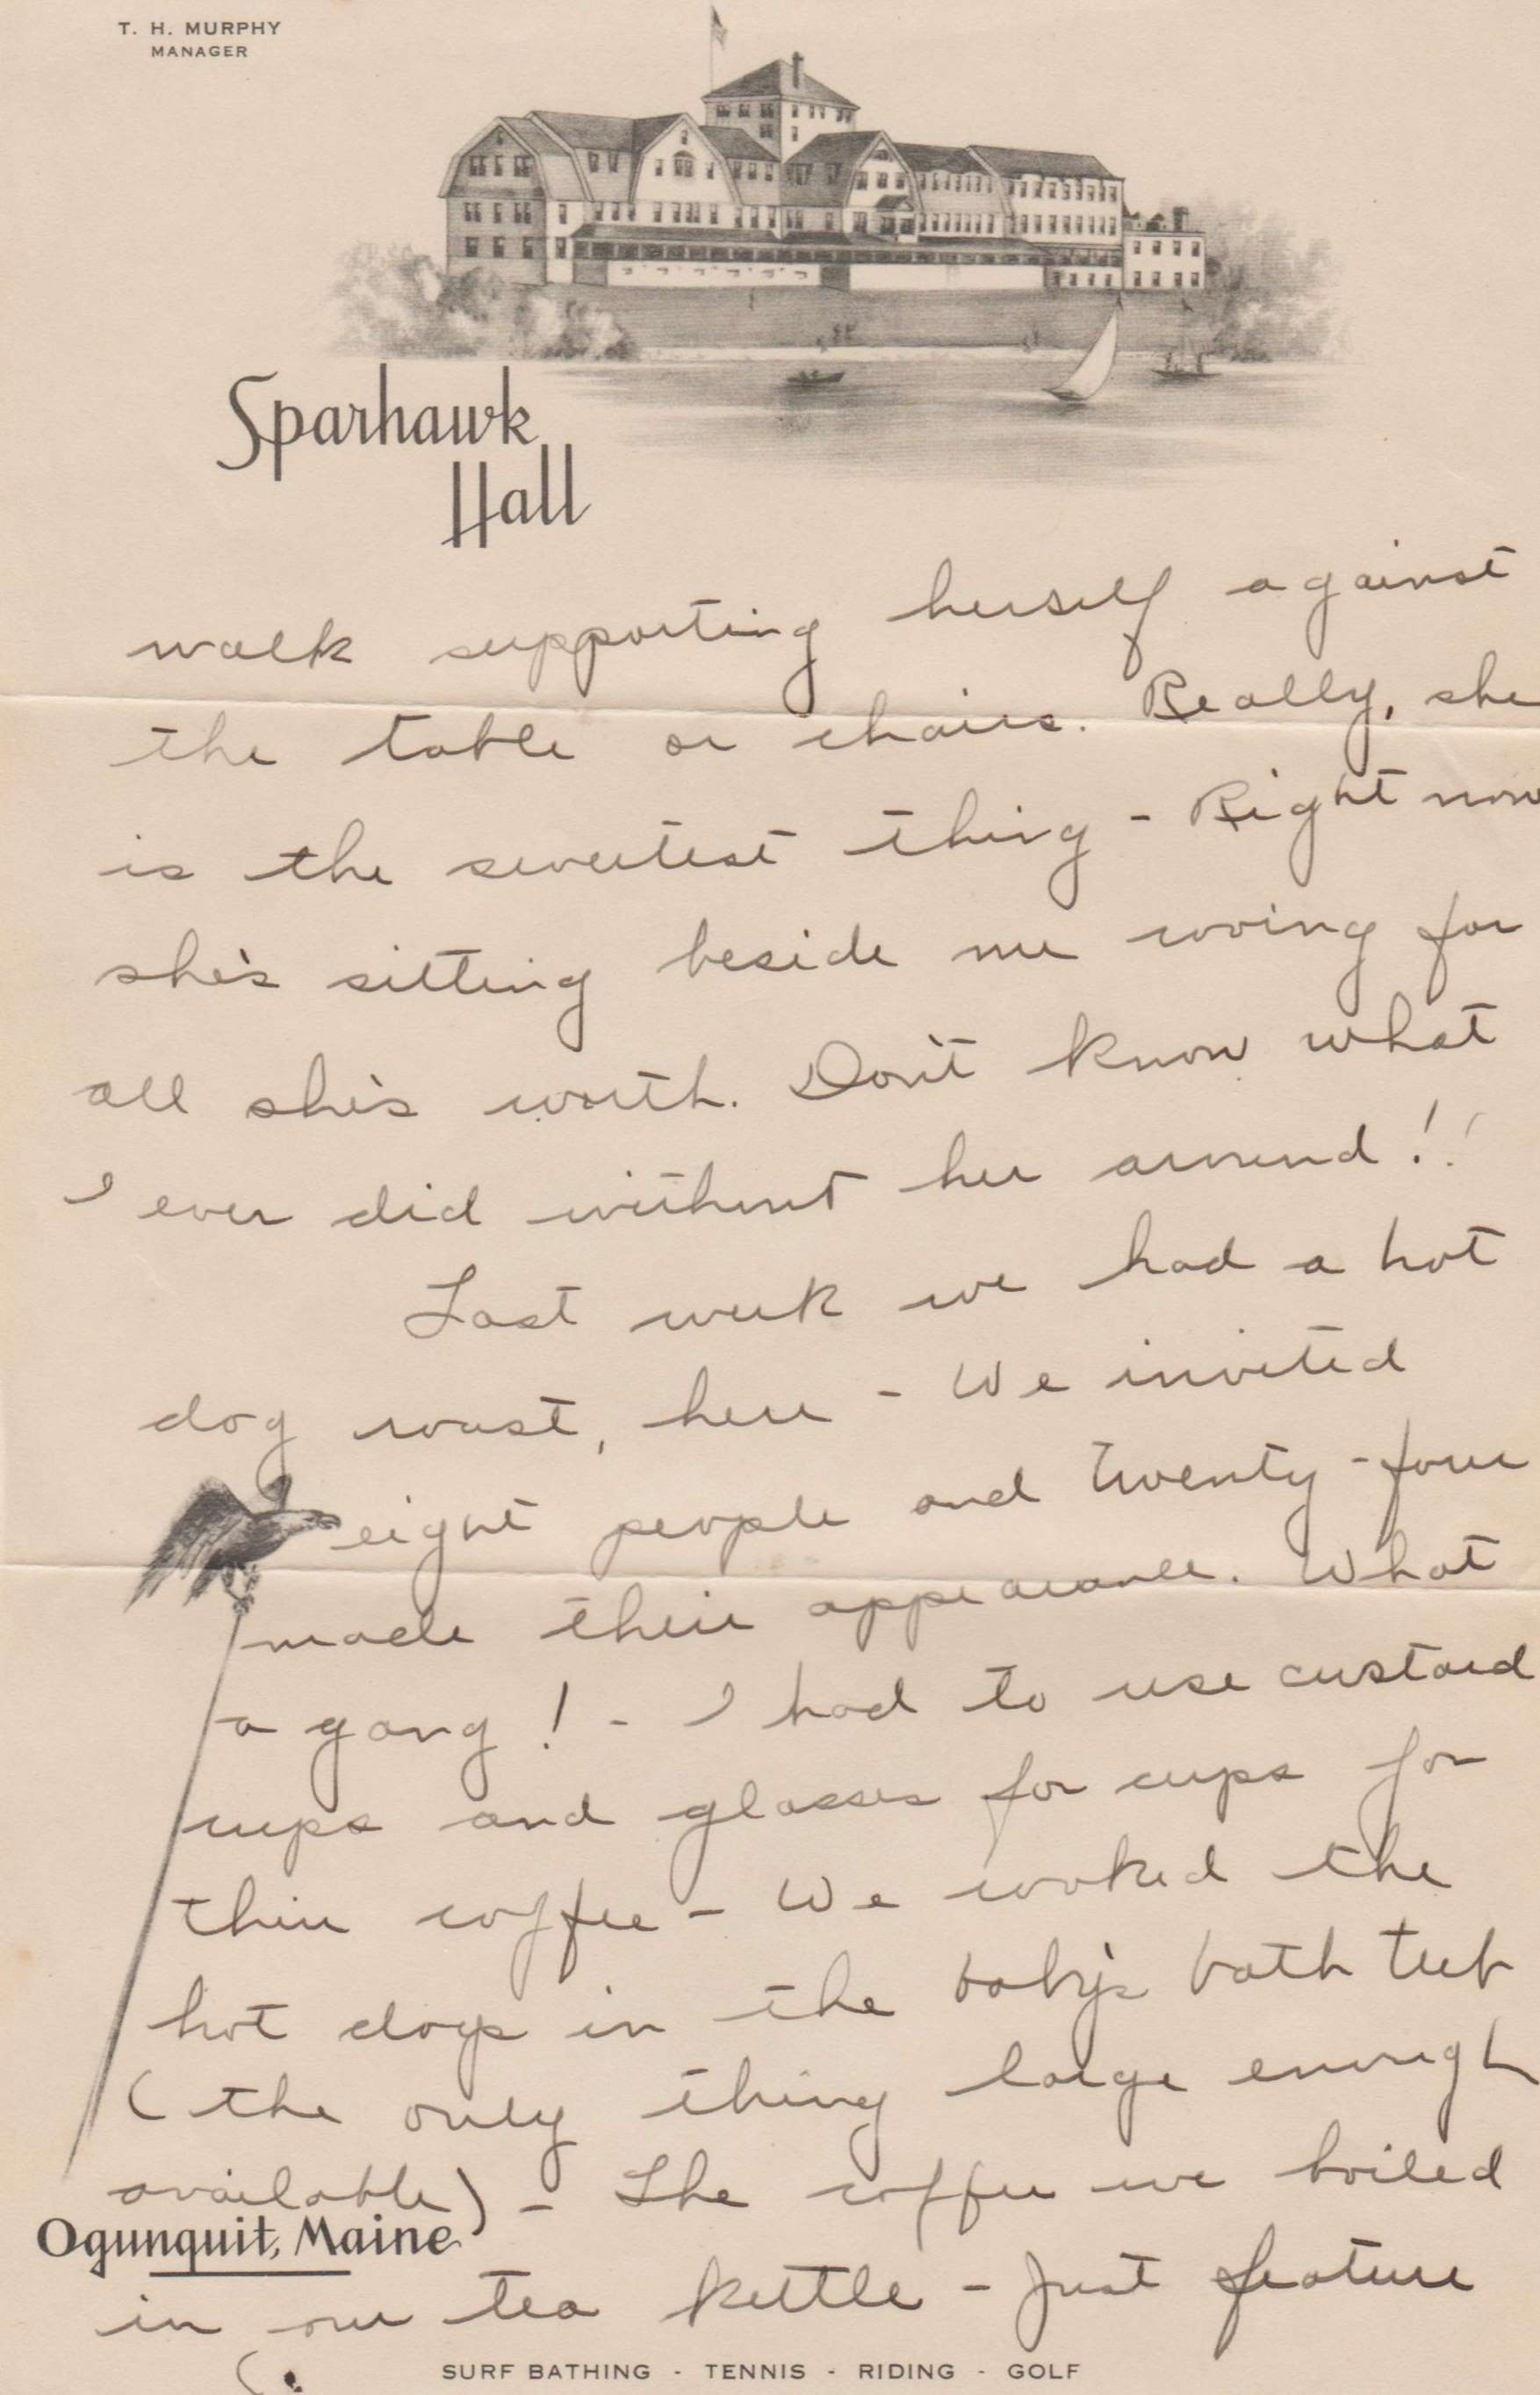 T. H. MURPHY
MANAGER
Sparhawk
Hall
walk supporting herself against
the table or chairs. Really, she
is the sweetest thing - Right now
she's sitting beside me cooing for
all she's worth. Don't know what
I ever did without her around!!
Last week we had a hot
dog roast, here - We invited
eight people and twenty-four
made their appearance. What
a gang! - I had to use custard
cups and glasses for cups for
their coffee - We cooked the
hot dogs in the baby's bath tub
(the only thing large enough
available) - The coffee we boiled
Ogunquit, Maine
in our tea kettle - Just feature
SURF BATHING - TENNIS - RIDING - GOLF